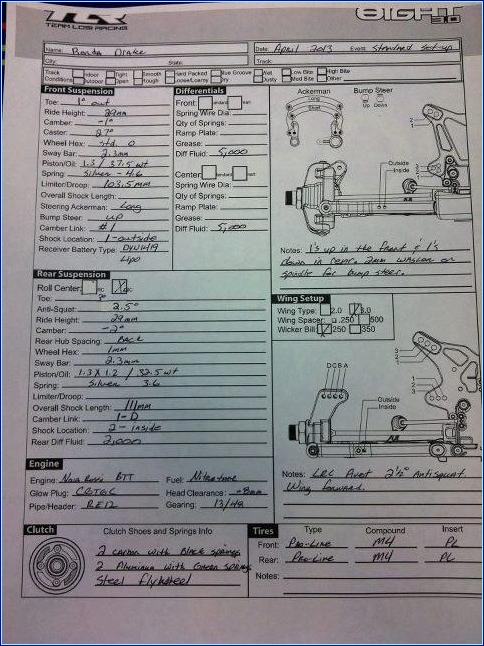 TLR
TEAM LOSI RACING
8IGHT 3.0
Name: Drake
Date: April 2013 Event: Standard set-up
City: State: Track:
Track Conditions Indoor Outdoor Tight Open Smooth Rough Hard Packed Loose/Loamy Blue Groove Dry Wet Dusty Low Bite Med Bite High Bite Other:
Front Suspension
Toe: 1° out
Ride Height: 29mm
Camber: -1°
Caster:
Wheel Hex: std. 0
Sway Bar: 2.3mm
Piston/Oil: 1.3 / 37.5 wt
Spring: Silver - 4.6
Limiter/Droop: 103.5mm
Overall Shock Length:
Steering Ackerman: Long
Bump Steer: up
Camber Link: #1
Shock Location: 1-outside
Receiver Battery Type:
Lipo
Differentials
Front: Standard
Spring Wire Dia:
Qty of Springs:
Ramp Plate:
Grease:
Diff Fluid: 5,000
Center: Standard
Spring Wire Dia:
Qty of Springs:
Ramp Plate:
Grease:
Diff Fluid: 5,000
Ackerman
Long
Short
Bump Steer
Up Down
Outside
Inside
Notes: 1's up in the front & 1's
down in rear. 2mm washer on
spindle for bump steer.
Rear Suspension
Roll Center:
Toe: 3°
Anti-Squat: 2.5°
Ride Height: 29mm
Camber: -2°
Rear Hub Spacing: Back
Wheel Hex: 1mm
Sway Bar: 2.3mm
Piston/Oil: 1.3 X 1.2 / 32.5 wt
Spring: Silver 3.6
Limiter/Droop:
Overall Shock Length: 111mm
Camber Link: 1-D
Shock Location: 2 - inside
Rear Diff Fluid: 2,000
Wing Setup
Wing Type: 2.0 3.0
Wing Spacer: .250 .500
Wicker Bill 250 350
D C B A
Outside
Inside
Notes: LRC Pivot 2½° Antisquat
Wing forward.
Engine
Engine: Nova Rossi BTT
Fuel: Nitrotane
Glow Plug: C6TGC
Head Clearance: .8mm
Pipe/Header: RE12
Gearing: 13/48
Clutch
Clutch Shoes and Springs Info
2 carbon with Black springs
2 Aluminum with Green springs
Steel flywheel
Tires
Type Compound Insert
Front: Pro-Line M4 PL
Rear: Pro-Line M4 PL
Notes: